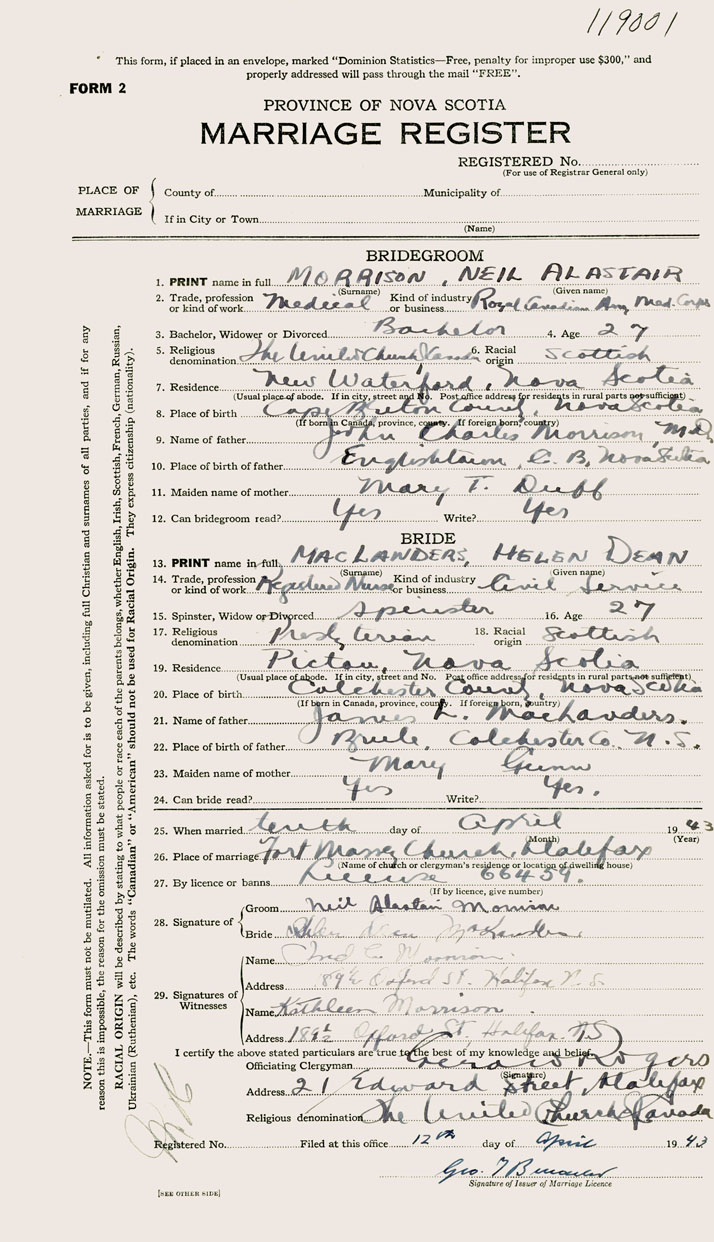 119001
This form, if placed in an envelope, marked "Dominion Statistics—Free, penalty for improper use $300," and
properly addressed will pass through the mail "FREE".
FORM 2
PROVINCE OF NOVA SCOTIA
MARRIAGE REGISTER
REGISTERED No.
(For use of Registrar General only)
PLACE OF MARRIAGE
County of Municipality of
If in City or Town
(Name)
BRIDEGROOM
1. PRINT name in full MORRISON, NEIL ALASTAIR
(Surname) (Given name)
2. Trade, profession or kind of work Medical Kind of industry or business Royal Canadian Army Med. Corps
3. Bachelor, Widower or Divorced Bachelor 4. Age 27
5. Religious denomination The United Church Canada 6. Racial origin Scottish
7. Residence New Waterford, Nova Scotia
(Usual place of abode. If in city, street and No. Post office address for residents in rural parts not sufficient)
8. Place of birth Cape Breton County, Nova Scotia
(If born in Canada, province, county. If foreign born, country)
9. Name of father John Charles Morrison, M.D.
10. Place of birth of father Englishtown, C.B, Nova Scotia
11. Maiden name of mother Mary T. Duff
12. Can bridegroom read? Yes Write? Yes
BRIDE
13. PRINT name in full MACLANDERS, HELEN DEAN
(Surname) (Given name)
14. Trade, profession or kind of work Registered Nurse Kind of industry or business Civil Service
15. Spinster, Widow or Divorced Spinster 16. Age 27
17. Religious denomination Presbyterian 18. Racial origin Scottish
19. Residence Pictou, Nova Scotia
(Usual place of abode. If in city, street and No. Post office address for residents in rural parts not sufficient)
20. Place of birth Colchester County, Nova Scotia
(If born in Canada, province, county. If foreign born, country)
21. Name of father James L. MacLanders.
22. Place of birth of father Brule, Colchester Co. N.S.
23. Maiden name of mother Mary Gunn
24. Can bride read? Yes Write? Yes.
25. When married tenth day of April 1943
(Month) (Year)
26. Place of marriage Fort Massey Church, Halifax
(Name of church or clergyman's residence or location of dwelling house)
27. By licence or banns License 66459.
(If by licence, give number)
28. Signature of
Groom Neil Alastair Morrison
Bride Helen Dean MacLanders.
29. Signatures of Witnesses
Name C. Morrison.
Address Oxford St. Halifax N.S.
Name Kathleen Morrison.
Address 189½ Oxford St, Halifax. N.S.
I certify the above stated particulars are true to the best of my knowledge and belief.
Officiating Clergyman Rogers
(Signature)
Address 21 Edward Street, Halifax
Religious denomination The United Church Canada
Registered No. Filed at this office 12th day of April 1943
Geo. T
Signature of Issuer of Marriage Licence
[SEE OTHER SIDE]
NOTE.—This form must not be mutilated. All information asked for is to be given, including full Christian and surnames of all parties, and if for any
reason this is impossible, the reason for the omission must be stated.
RACIAL ORIGIN will be described by stating to what people or race each of the parents belongs, whether English, Irish, Scottish, French, German, Russian,
Ukrainian (Ruthenian), etc. The words "Canadian" or "American" should not be used for Racial Origin. They express citizenship (nationality).